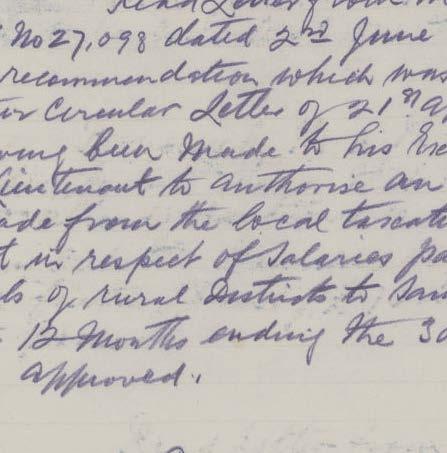 Read Letter from
No 27,098 dated 2nd June
recommendation which was
Circular Letter of 21st
been made to his
Lieutenant to authorise an
from the local taxati
in respect of Salaries pa
of rural Districts to San
12 Months ending the 3
approved.